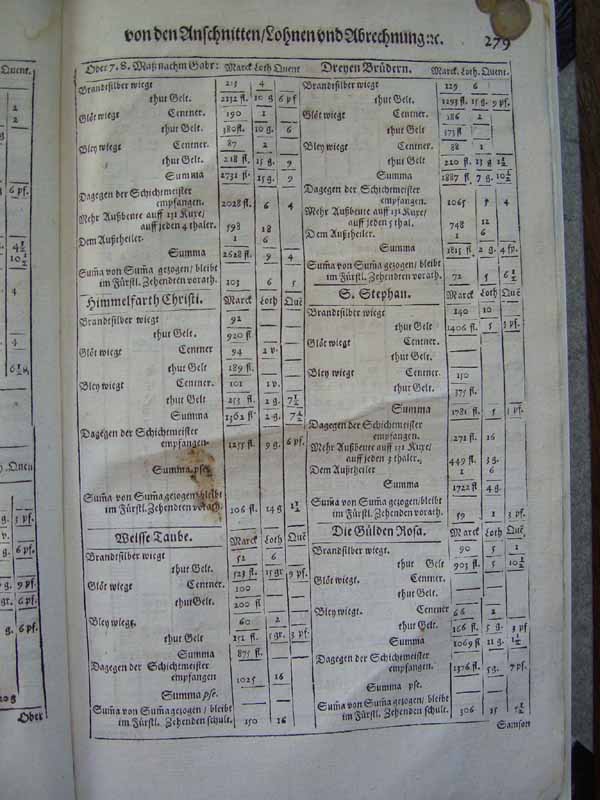 von den Anschnitten/Lohnen vnd Abrechnung ꝛc. 279
Ober 7. 8. Maß nachm Gabr: Marck Loth Quent
Brandtsilber wiegt 215 4
thut Gelt. 2232 fl. 10 g 6 pf
Glöt wiegt Centner. 190 1
thut Gelt. 380 fl. 10 g. 6
Bley wiegt Centner. 87 2
thut Gelt. 218 fl. 15 g. 9
Summa 2731 fl. 15 g. 9
Dagegen der Schichtmeister
empfangen. 2028 fl. 6 4
Mehr Außbeute auff 131 Kuxe/
auff jeden 4 thaler. 598 18
Dem Außtheiler. 1 6
Summa 2628 fl. 9 4
Sum̃a von Sum̃a gezogen/bleibt
im Fürstl. Zehendten vorath. 103 6 5
Himmelfarth Christi. Marck Loth Quẽ
Brandtsilber wiegt 92
thut Gelt. 920 fl.
Glöt wiegt Centner 94 2 v.
thut Gelt 189 fl.
Bley wiegt Centner. 101 1 v.
thut Gelt 253 fl. 2 g. 7 1/2
Summa 1362 fl. 2 g. 7 1/2
Dagegen der Schichtmeister
empfangen. 1255 fl. 9 g. 6 pf.
Summa pse.
Sum̃a von Sum̃a gezogen/bleibt
im Fürstl. Zehendten vorath. 106 fl. 14 g 1 1/2
Weisse Taube. Marck Loth Quẽ
Brandtsilber wiegt 52 6
thut Gelt. 523 fl. 15 gr. 9 pf.
Glöt wiegt Centner. 100
thut Gelt. 200 fl
Bley wiegt. 60 2
thut Gelt 151 fl. 5 gr. 3 pf.
Summa 875 fl.
Dagegen der Schichtmeister
empfangen 1025 16
Summa pse.
Sum̃a von Sum̃a gezogen/ bleibt
im Fürstl. Zehenden schult. 150 16
Dreyen Brüdern. Marck. Loth. Quent.
Brandtsilber wiegt 129 6
thut Gelt. 1293 fl. 15 g. 9 pf.
Glöt wiegt Centner. 186 2
thut Gelt. 373 fl
Bley wiegt Centner. 88 1
thut Gelt. 220 fl. 13 g 1 1/2
Summa 1887 fl. 7 g. 10 1/2
Dagegen der Schichtmeister
empfangen. 1065 9 4
Mehr Außbeute auff 131 Kuxe/
auff jeden 5 thal. 748 12
Dem Außtheiler. 1 6
Summa 1815 fl. 2 g. 4 pf.
Sum̃a von Sum̃a gezogen/ bleibt
im Fürstl. Zehendten vorath. 72 5 6 1/2
S. Stephan. Marck Loth Quẽ
Brandtsilber wiegt 140 10
thut Gelt 1406 fl. 5 3 pf.
Glöt wiegt Centner
thut Gelt.
Bley wiegt Centner. 150
thut Gelt. 375 fl.
Summa 1781 fl. 5 3 pf.
Dagegen der Schichtmeister
empfangen. 1271 fl. 16
Mehr Außbeute auff 131 Kuxe/
auff jeden 3 thaler. 449 fl. 3 g.
Dem Außtheiler 1 6
Summa 1722 fl 4 g.
Sum̃a von Sum̃a gezogen/ bleibt
im Fürstl. Zehendten vorath. 59 1 3 pf.
Die Gülden Rosa. Marck Loth Quẽ
Brandtsilber wiegt. 90 5 1
thut Gelt 903 fl. 5 10 1/2
Glöt wiegt Centner.
thut Gelt.
Bley wiegt. Centner 66 2
thut Gelt. 166 fl. 5 g. 3 pf
Summa 1069 fl 11 g. 1 1/2
Dagegen der Schichtmeister
empfangen. 1376 fl. 5 g. 7 pf.
Summa pse.
Sum̃a von Sum̃a gezogen/ bleibt
im Fürstl. Zehenden schult. 306 15
Samson
Quent.
Ober